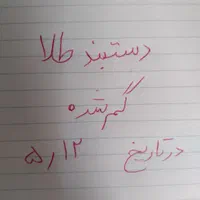 دستبند طلا
گم شده
در تاریخ ۱۲ ر ۵